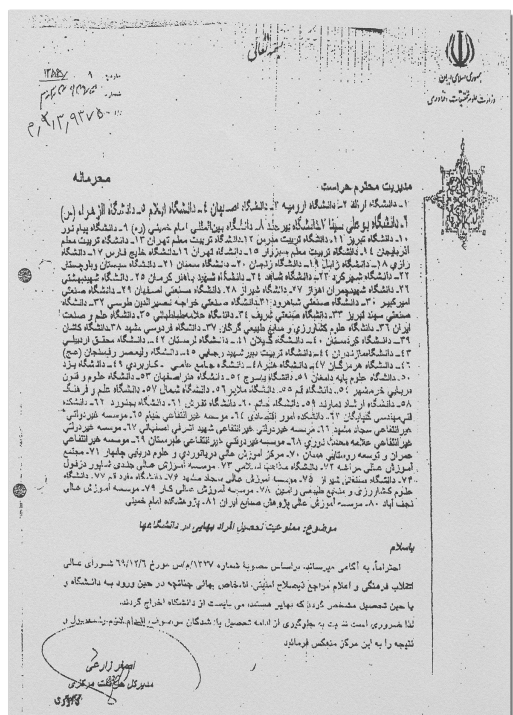 بسمه تعالی
جمهوری اسلامی ایران
وزارت علوم، تحقیقات و فناوری
شماره:
محرمانه
مدیریت محترم حراست
۱- دانشگاه اراک ۲- دانشگاه ارومیه ۳- دانشگاه اصفهان ۴- دانشگاه ایلام ۵- دانشگاه الزهراء (س)
۶- دانشگاه بوعلی سینا ۷- دانشگاه بیرجند ۸- دانشگاه بین‌المللی امام خمینی (ره) ۹- دانشگاه پیام نور
۱۰- دانشگاه تبریز ۱۱- دانشگاه تربیت مدرس ۱۲- دانشگاه تربیت معلم تهران ۱۳- دانشگاه تربیت معلم
آذربایجان ۱۴- دانشگاه تربیت معلم سبزوار ۱۵- دانشگاه تهران ۱۶- دانشگاه خلیج فارس ۱۷- دانشگاه
رازی ۱۸- دانشگاه زابل ۱۹- دانشگاه زنجان ۲۰- دانشگاه سمنان ۲۱- دانشگاه سیستان وبلوچستان
۲۲- دانشگاه شهرکرد ۲۳- دانشگاه شاهد ۲۴- دانشگاه شهید باهنر کرمان ۲۵- دانشگاه شهیدبهشتی
۲۶- دانشگاه شهیدچمران اهواز ۲۷- دانشگاه شیراز ۲۸- دانشگاه صنعتی اصفهان ۲۹- دانشگاه صنعتی
امیرکبیر ۳۰- دانشگاه صنعتی شاهرود ۳۱- دانشگاه صنعتی خواجه نصیرالدین طوسی ۳۲- دانشگاه
صنعتی سهند تبریز ۳۳- دانشگاه صنعتی شریف ۳۴- دانشگاه علامه‌طباطبائی ۳۵- دانشگاه علم و صنعت
ایران ۳۶- دانشگاه علوم کشاورزی و منابع طبیعی گرگان ۳۷- دانشگاه فردوسی مشهد ۳۸- دانشگاه کاشان
۳۹- دانشگاه کردستان ۴۰- دانشگاه گیلان ۴۱- دانشگاه لرستان ۴۲- دانشگاه محقق اردبیلی
۴۳- دانشگاه مازندران ۴۴- دانشگاه تربیت دبیر شهید رجایی ۴۵- دانشگاه ولیعصر رفسنجان (عج)
۴۶- دانشگاه هرمزگان ۴۷- دانشگاه هنر ۴۸- دانشگاه جامع علمی - کاربردی ۴۹- دانشگاه یزد
۵۰- دانشگاه علوم پایه دامغان ۵۱- دانشگاه یاسوج ۵۲- دانشگاه هنر اصفهان ۵۳- دانشگاه علوم و فنون
دریایی خرمشهر ۵۴- دانشگاه قم ۵۵- دانشگاه ملایر ۵۶- دانشگاه شمال ۵۷- دانشگاه علم و فرهنگ
۵۸- دانشگاه ارشاد دماوند ۵۹- دانشگاه خاتم ۶۰- دانشگاه تفرش ۶۱- دانشگاه بجنورد ۶۲- دانشکده
فنی مهندسی گلپایگان ۶۳- دانشکده امور اقتصادی ۶۴- موسسه غیرانتفاعی خیام ۶۵- موسسه غیردولتی
غیرانتفاعی سجاد مشهد ۶۶- موسسه غیردولتی غیرانتفاعی شهید اشرفی اصفهانی ۶۷- موسسه غیردولتی
غیرانتفاعی علامه محدث نوری ۶۸- موسسه غیردولتی غیرانتفاعی طبرستان ۶۹- موسسه غیرانتفاعی
عمران و توسعه روستایی همدان ۷۰- مرکز آموزش عالی دریانوردی و علوم دریایی چابهار ۷۱- مجتمع
آموزش عالی مراغه ۷۲- دانشگاه مذاهب اسلامی ۷۳- موسسه آموزش عالی جندی شاپور دزفول
۷۴- دانشگاه صنعتی شیراز ۷۵- موسسه آموزش عالی سجاد مشهد ۷۶- دانشگاه مفید قم ۷۷- دانشگاه
علوم کشاورزی و منابع طبیعی رامین ۷۸- موسسه آموزش عالی کار ۷۹- موسسه آموزش عالی
نجف آباد ۸۰- موسسه آموزش عالی پژوهش صنایع ایران ۸۱- پژوهشکده امام خمینی
موضوع: ممنوعیت تحصیل افراد بهایی در دانشگاهها
باسلام
احتراماً، به آگاهی میرساند، براساس مصوبه شماره ۱۳۲۷/م/س مورخ ۶۹/۱۲/۶ شورای عالی
انقلاب فرهنگی و اعلام مراجع ذیصلاح امنیتی، اشخاص بهائی چنانچه در حین ورود به دانشگاه و
یا حین تحصیل مشخص گردد که بهایی هستند، می بایست از دانشگاه اخراج گردند.
لذا ضروری است نسبت به جلوگیری از ادامه تحصیل یاد شدگان موصوف، اقدام لازم معمول و
نتیجه را به این مرکز منعکس فرمائید
اصغر زارعی
مدیرکل حراست مرکزی